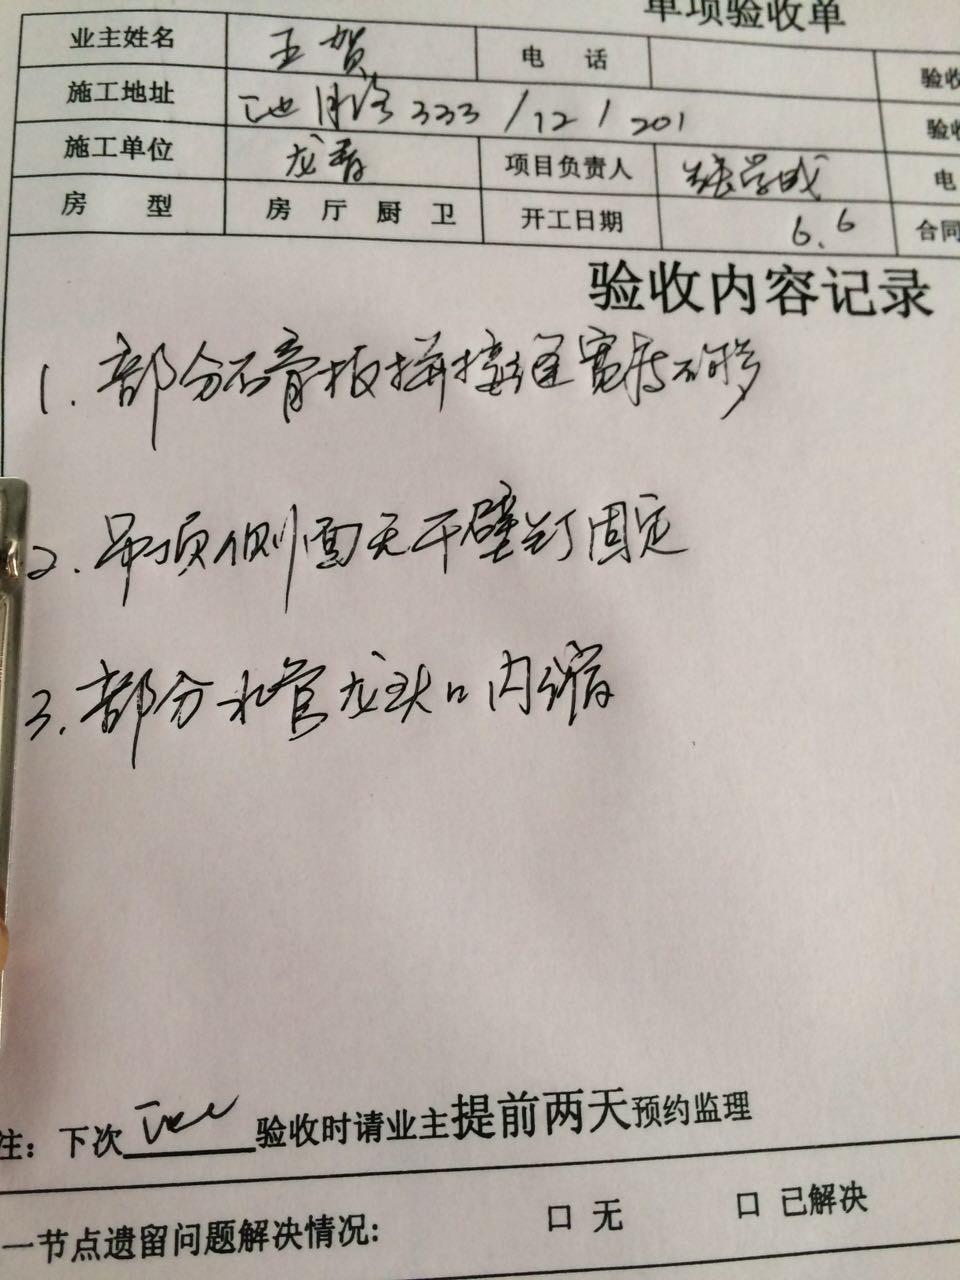 单项验收单
业主姓名 王贺 电 话 验收
施工地址 333 / 12 / 201 验收
施工单位 龙 项目负责人 电
房 型 房 厅 厨 卫 开工日期 6.6 合同
验收内容记录
1. 部分石膏板拼接缝宽度不够
2. 吊顶侧面无干壁钉固定
3. 部分水管龙头口内缩
注: 下次 验收时请业主提前两天预约监理
一节点遗留问题解决情况: 口 无 口 已解决